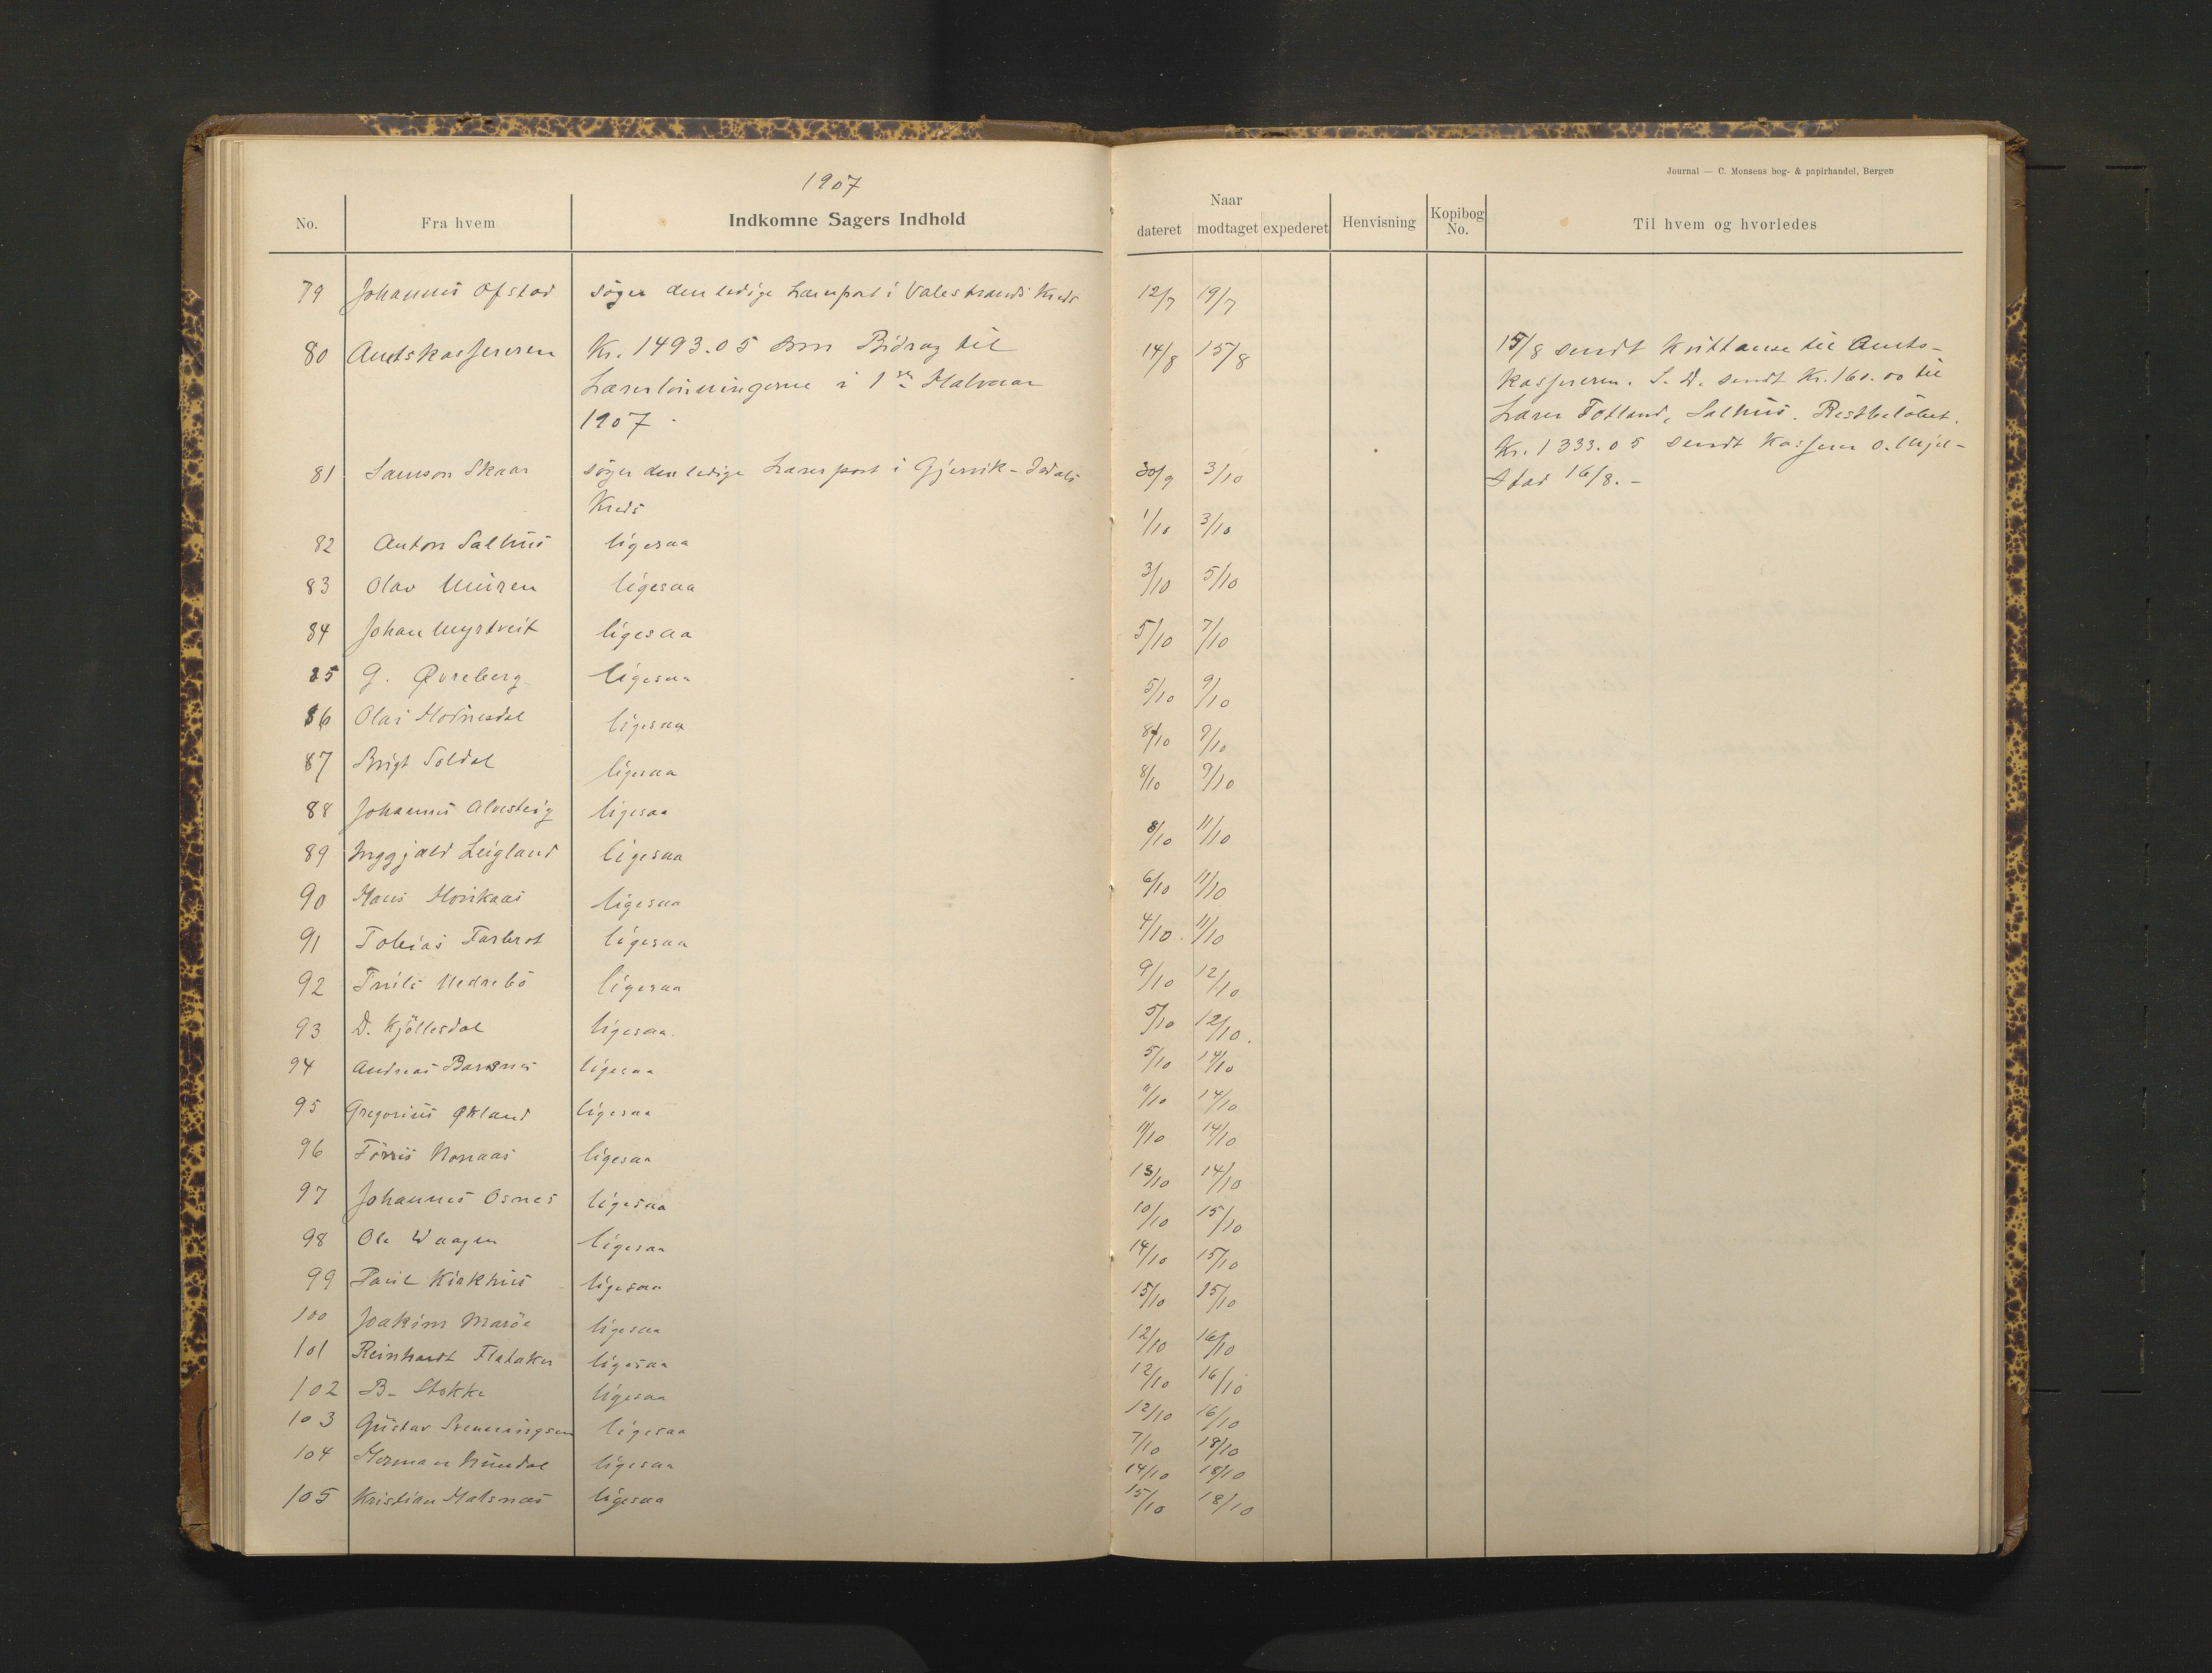 1907
Journal — C. Monsens bog- & papirhandel, Bergen
No. Fra hvem Indkomne Sagers Indhold Naar dateret modtaget expederet Henvisning Kopibog No. Til hvem og hvorledes
79 Johannes Ofstad søger den ledige Lærerpost i Valestrands Kreds 12/7 19/7
80 Amtskassereren Kr. 1493.05 som Bidrag til 14/8 15/8 15/8 sendt Kvittance til Amts-
Lærerlönningerne i 1ste Halvaar kassereren. S. D. sendt Kr. 160.00 til
1907. Lærer Totland, Salhus. Restbelöbet.
Kr. 1333.05 sendt Kasserer O. Mjel-
81 Samson Skaar søger den ledige Lærerpost i Gjervik - Isdals 30/9 3/10 stad 16/8. -
Kreds
82 Anton Salhus ligesaa 1/10 3/10
83 Olav Muren ligesaa 3/10 5/10
84 Johan Myrtveit ligesaa 5/10 7/10
85 G. Øvreberg ligesaa 5/10 9/10
86 Olai ligesaa 8/10 9/10
87 Brigt Soldal ligesaa 8/10 9/10
88 Johannes Alvesteig ligesaa 8/10 11/10
89 Inggjald Leigland ligesaa 6/10 11/10
90 Hans Hovikaas ligesaa 4/10 11/10
91 Tobias Farbrot ligesaa 9/10 12/10
92 Truls Nedrebö ligesaa 5/10 12/10.
93 D. Kjöllesdal ligesaa. 5/10 14/10
94 Andreas Barsnes ligesaa 11/10 14/10
95 Gregorius Økland ligesaa 11/10 14/10
96 Förris Monaas ligesaa 13/10 14/10
97 Johannes Osnes ligesaa 10/10 15/10
98 Ole Waagen ligesaa 14/10 15/10
99 Paul Kirkhus ligesaa 15/10 15/10
100 Joakim Maröe ligesaa 12/10 16/10
101 Reinhardt Flataker ligesaa 12/10 16/10
102 B. Stokke ligesaa 12/10 16/10
103 Gustav Svenningsen ligesaa 7/10 18/10
104 Herman Nundal ligesaa 14/10 18/10
105 Kristian Malsnes ligesaa 15/10 18/10